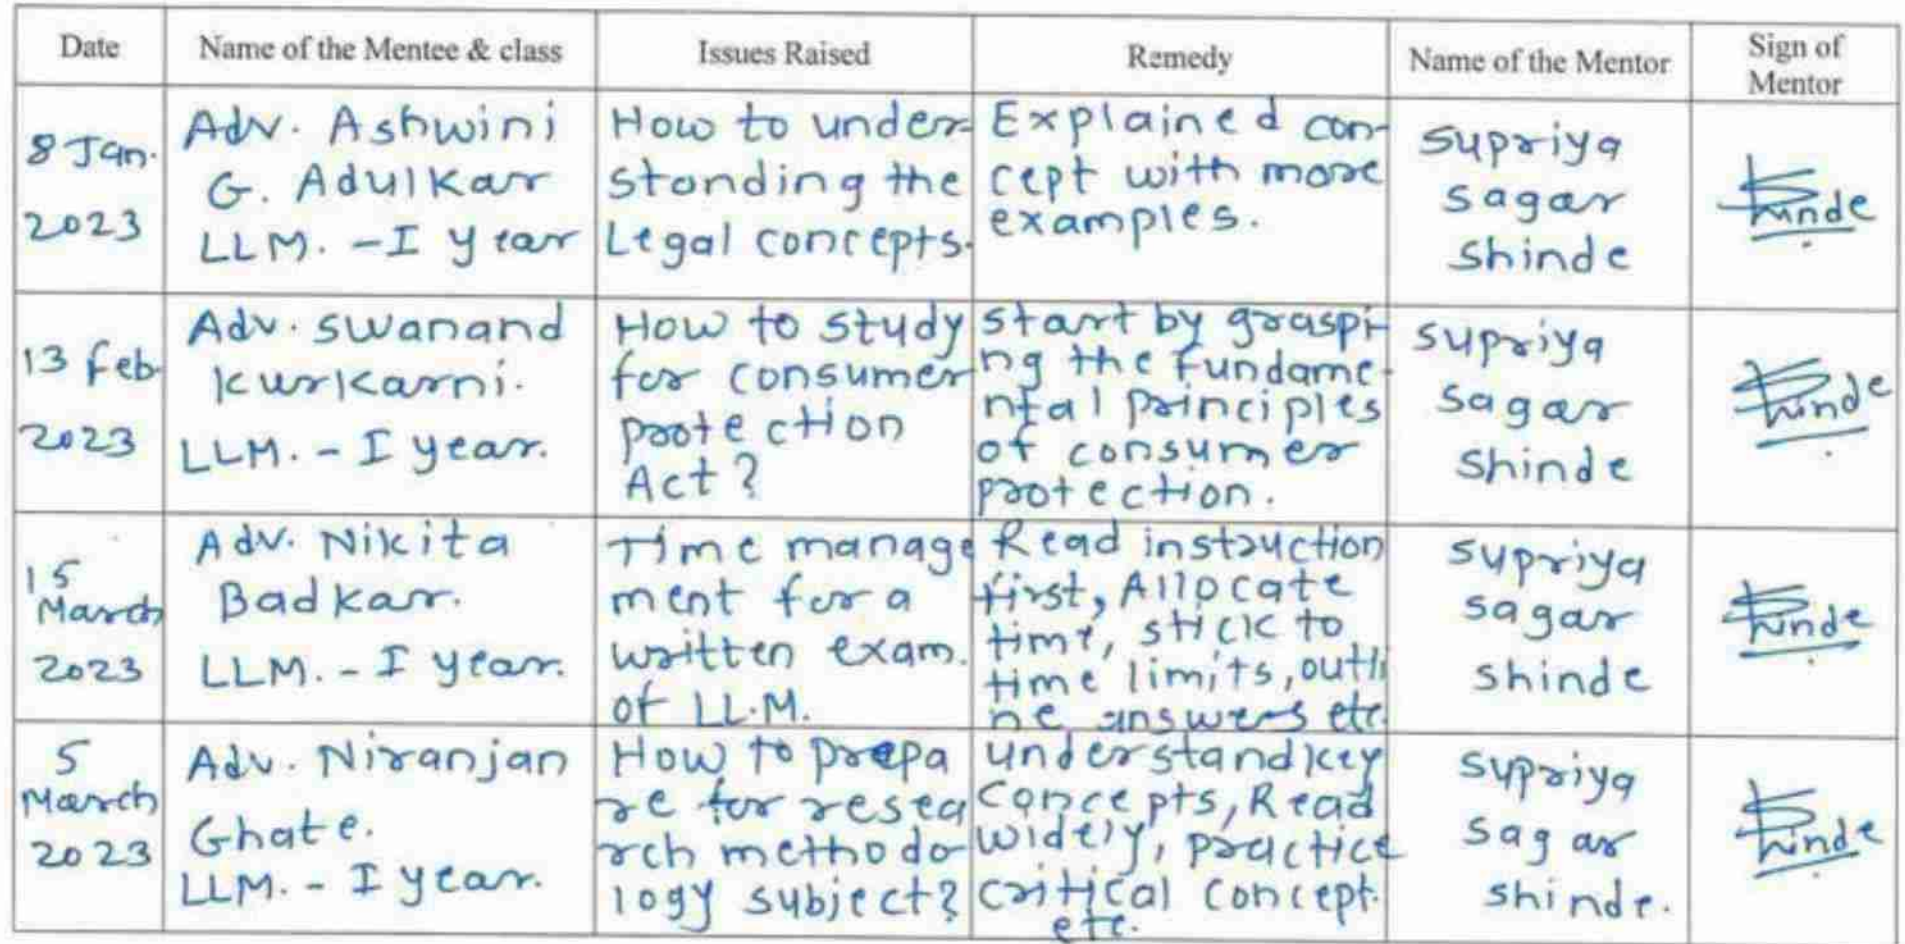 Date
Name of the Mentee & class
Issues Raised
Remedy
Name of the Mentor
Sign of
Mentor
8 Jan.
2023
Adv. Ashwini
G. Adulkar
LLM. - I year
How to under-
standing the
Legal concepts.
Explained con-
cept with more
examples.
Supriya
Sagar
Shinde
Shinde
13 Feb
2023
Adv. Swanand
Kurkarni.
LLM. - I year.
How to study
for consumer
protection
Act ?
Start by graspi-
ng the fundame-
ntal principles
of consumer
protection.
Supriya
Sagar
Shinde
Shinde
15
March
2023
Adv. Nikita
Badkar.
LLM. - I year.
Time manage
ment for a
written exam.
of LL.M.
Read instruction
first, Allocate
time, stick to
time limits, outli
ne answers etc
Supriya
Sagar
Shinde
Shinde
5
March
2023
Adv. Niranjan
Ghate.
LLM. - I year.
How to prepa
re for resea
rch methodo
logy subject?
understand key
Concepts, Read
widely, practice
critical concept.
etc.
Supriya
Sagar
Shinde.
Shinde